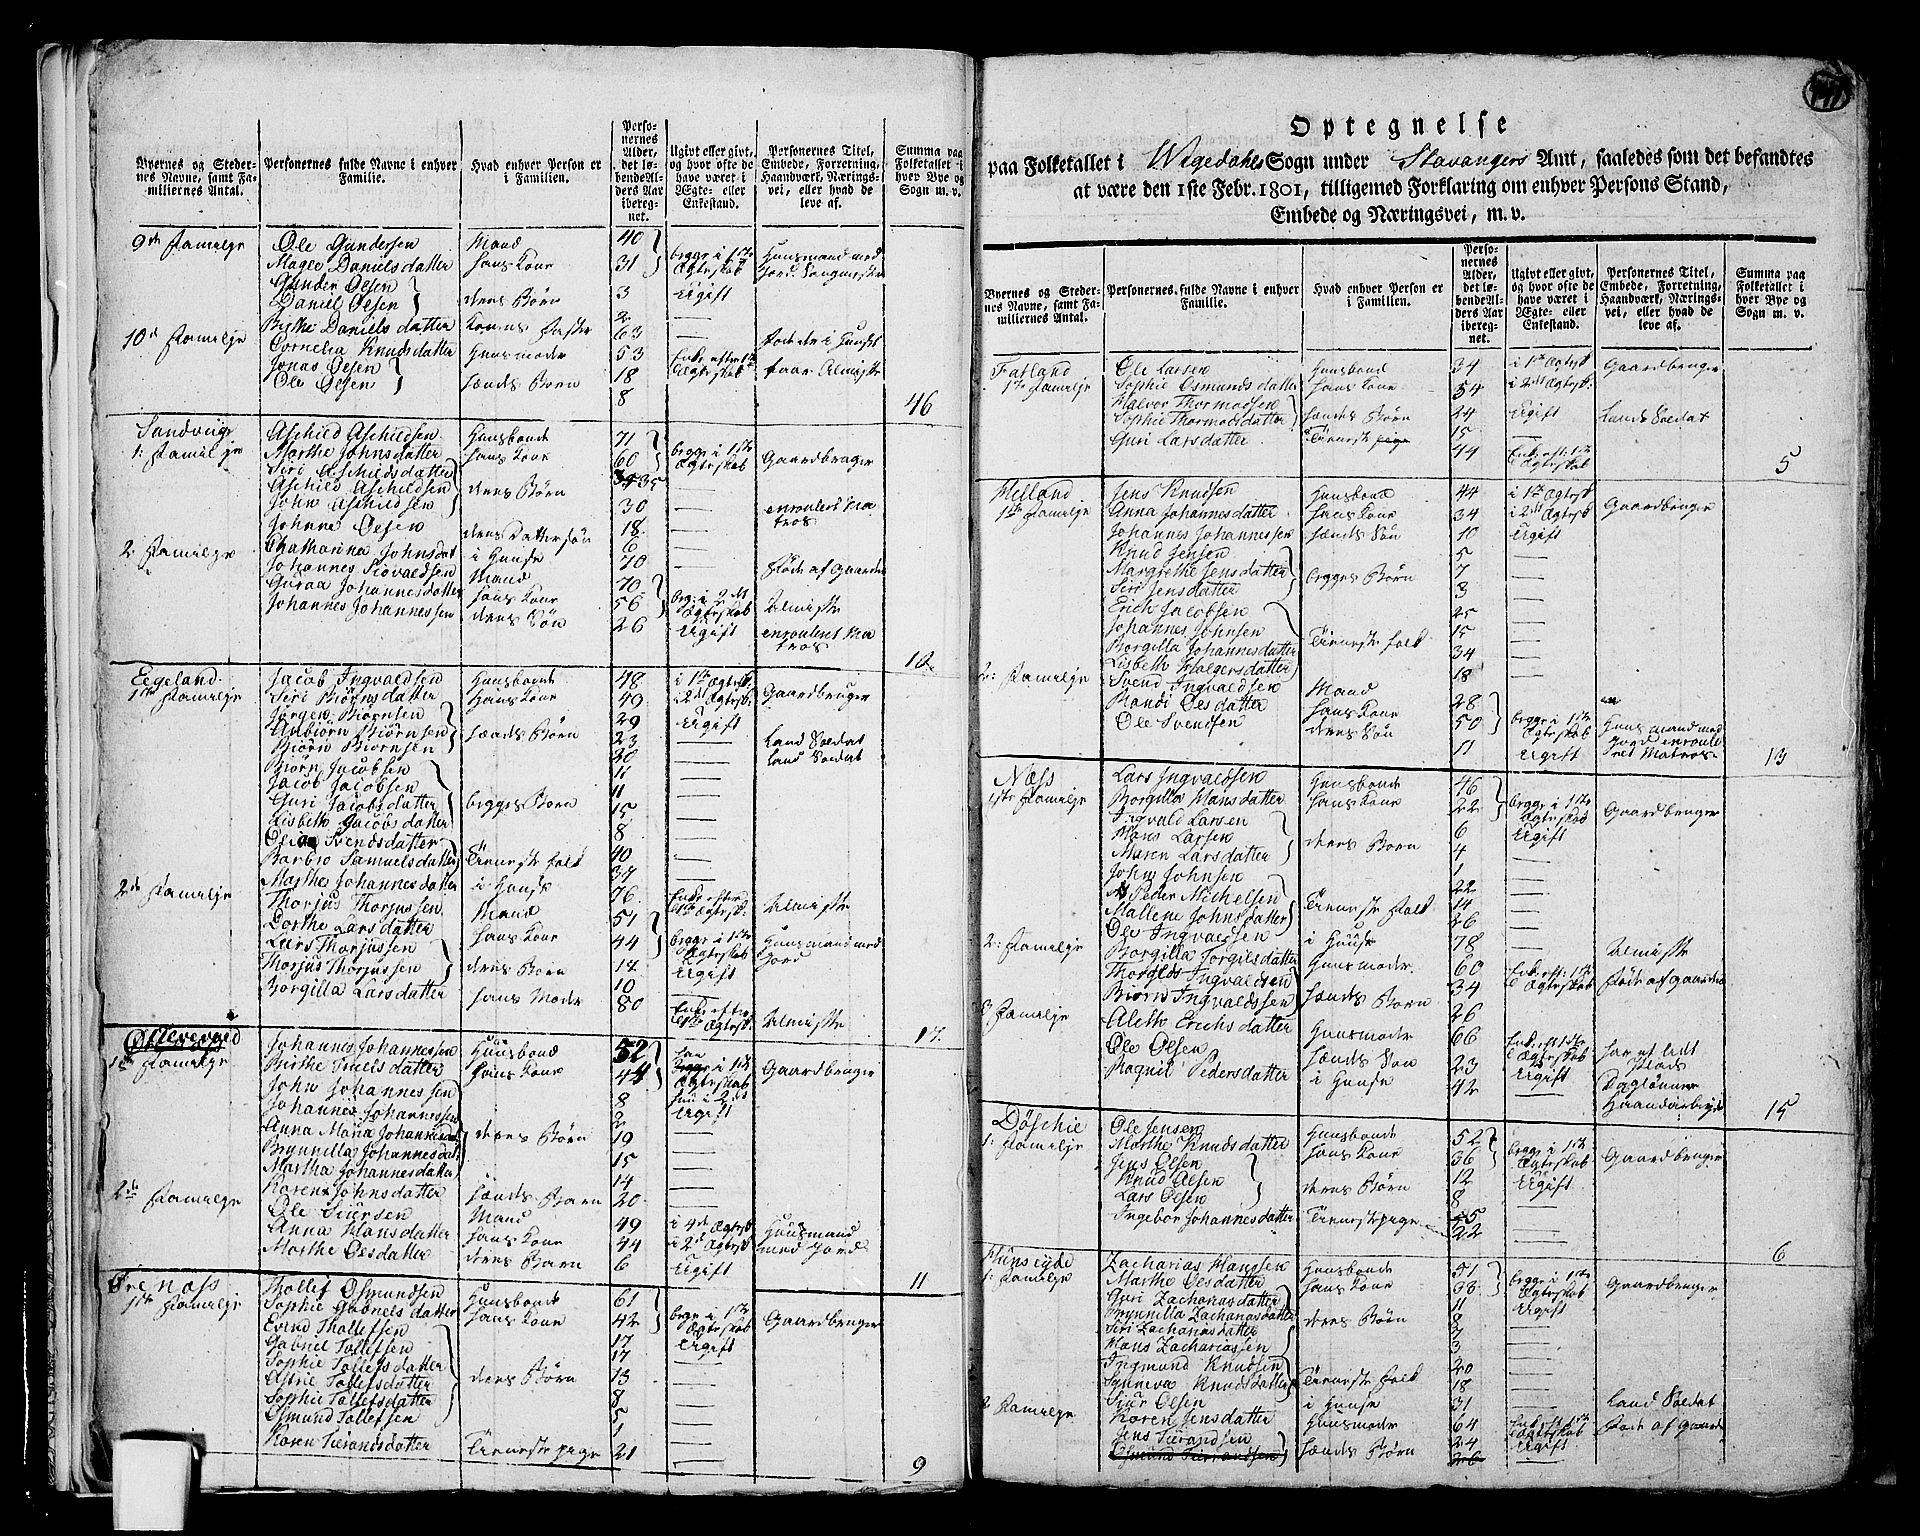 Byernes og Steder-
nes Navne, samt Fa-
miliernes Antal.
Personernes fulde Navne i enhver
Familie.
Hvad enhver Person er
i Familien.
Perso-
nernes
Alder,
det lø-
bende Al-
ders Aar
iberegt-
net.
Ugivt eller givt,
og hvor ofte de
have været i
Ægte- eller
Enkestand.
Personernes Titel,
Embede, Forretning,
Haandværk, Nærings-
vei, eller hvad de
leve af.
Summa paa
Folketallet i
hver Bye og
Sogn m. v.
9de Familje Ole Gundersen Mand 40 begge i 1ste Huusmand med
Magle Danielsdatter hans Kone 31 Ægteskab
Gunder Olsen
Daniel Olsen deres Børn 3 Ugift
2
Birthe Danielsdatter Konens Faster 63
10de Familje Cornelia Knudsdatter Huusmoder 53 Enke efter 1ste Ægteskab
Jonas Olsen
Ole Olsen hændes Børn 18
8
46
Sandvüg
1: Familje Aschild Aschildsen Huusbonde 71 begge i 1ste Ægteskab Gaardbruger
Marthe Johnsdatter hans Kone 60
Siri Aschildsdatter
Aschild Aschildsen deres Børn 35
John Aschildsen 30 enroulert Matros
Johnne Olsen deres Dattersøn 18
6
2: Familje Chatharina Johnsdat i Huuse 70 Føde af Gaarden
Johannes Siovaldsen Mand 70
Guraa Johannesdatter hans Kone 56 beg: i 2det Ægteskab Almisse
Johannes Johannessen deres Søn 26 Ugift enroulert Matros
10.
Eegeland
1ste Familje Jacob Ingvaldsen Huusbonde 48 i 1ste Ægtesk. Gaardbruger
Siri Biörnsdatter Hans Kone 49 i 2de Ægtesk.
Jørgen Biørnsen 29 Ugift
Anbiörn Biörnsen hændes Børn 23 Land Soldat
Biörn Biørnsen 20 Land Soldat
Biørn Jacobsen 11
Jacob Jacobsen 11
Guri Jacobsdatter begges Børn 15
Lisbeth Jacobsdatter 8
Svendsdatter 40
Barbro Samuelsdatter Tieneste folk 37
Marthe Johannesdatter i Huuse 76 Enke efter 1ste Ægtesk. Almisse
2de Familje Thorjus Thorjussen Mand 51
Dorthe Larsdatter hans Kone 44 begge i 1ste Ægteskab Huusmand med Jord
Lars Thorjussen
Thorjus Thorjussen deres Børn 12 Ugift
10
Borgilla Larsdatter hans Moder 80 Enke efter 1ste Ægteskab Almisse
17.
Østerevaad
1ste Familje Johannes Johannessen Huusbond 52 Gaardbruger
Birthe Truelsdatter hans Kone 44
John Johannessen 8
Johannes Johannessen 2 Ugift
Anna Maria Johannesdat deres Børn 19
Brynnilla Johannesdat 15
Martha Johannesdatter 14
Karen Johnsdatter hændes Barn 20
2de Familje Ole Siursen Mand 49 i 4de Ægtesk Huusmand med Jord
Anna Hansdatter hans Kone 44 i 2de Ægtesk
Marthe Olesdatter deres Barn 6 Ugift
11
Øre Næss
1ste Familje Thollef Osmundsen Huusbonde 61 begge i 1ste Ægteskab Gaardbruger
Sophie Gabrielsdatter hans Kone 42
Evend Thollefsen 17 Ugift
Gabriel Tollefsen 17
Sophie Tollefsdatter deres Børn 13
Astrie Tollefsdatter 8
Sophie Tollefsdatter 5
Osmund Tollefsen 1
Karen Tierandsdatter Tieneste pige 21
9
Optegnelse
paa Folketallet i Wigedahls Sogn under Stavangers Amt, saaledes som det befandtes
at være den 1ste Febr. 1801, tilligemed Forklaring om enhver Persons Stand,
Embede og Næringsvei, m. v.
Byernes og Steder-
nes Navne, samt Fa-
miliernes Antal.
Personernes fulde Navne i enhver
Familie.
Hvad enhver Person er
i Familien.
Perso-
nernes
Alder,
det lø-
bende Al-
ders Aar
ibereg-
net.
Ugivt eller givt,
og hvor ofte de
have været i
Ægte- eller
Enkestand.
Personernes Titel,
Embede, Forretning,
Haandværk, Nærings-
vei, eller hvad de
leve af.
Summa paa
Folketallet i
hver Bye og
Sogn m. v.
Fatland
1ste Familje Ole Larsen Huusbond 34 i 1ste Ægtesk Gaardbruger
Sophie Osmundsdatter hans Kone 54 i 2det Ægtesk.
Halvor Thormodsen 24 Ugift Land Soldat
Sophie Thormodsdatter hændes Børn 15
Guri Larsdatter Tieneste pige 44 Enke eft: 1ste Ægteskab
5
Melland
1ste Familje Jens Knudsen Huusbond 44 i 1ste Ægtesk Gaardbruger
Anna Johannesdatter hans Kone 34 i 2det Ægtesk
Johannes Johannessen hændes Søn 10 Ugift
Knud Jensen 5
Margrethe Jensdatter begges Børn 7
Siri Jensdatter 3
Erich Jacobsen 25
Johannes Johnsen 15
Borgilla Johannesdatter Tieneste folk 34
Lisbeth Holgersdatter 18
2: Familje Svend Ingvaldsen Mand 28
Randi Olesdatter hans Kone 50 begge i 1ste Ægteskab Huusmand med Jord enroulleret Matros
Ole Svendsen deres Søn 11 Ugift
13
Næss
1ste Familje Lars Ingvaldsen Huusbonde 46 begge i 1ste Ægteskab Gaardbruger
Borgilla Hansdatter hans Kone 22
Ingvald Larsen 6 Ugift
Hans Larsen deres Børn 4
Maren Larsdatter 1
John Johnsen 22
Peder Michelsen Tieneste Folk 14
Mallene Johnsdatter 26
Ole Ingvaldsen i Huuse 78 Almisse
2: Familje Borgilla Torgilsdatter Huusmoder 60 Enke eft: 1ste Ægteskab Føde af Gaarden
Thorgils Ingvaldsen 34
Biørn Ingvaldssen hændes Børn 26
3 Familje Aleth Erichsdatter Huusmoder 66 Enke eft 1ste Ægteskab har et lidt Plads
Ole Olsen hændes Søn 23 Ugift Daglønner
Raquel Pedersdatter i Huuse 42 Haandarbeyde
15
Døschie
1: Familje Ole Jensen Huusbonde 52 begge i 1ste Ægteskab Gaardbruger
Marthe Knudsdatter hans Kone 36
Jens Olsen 12 Ugift
Knud Olsen deres Børn 8
Lars Olsen 5
Ingebor Johannesdatter Tieneste pige 22
6
Hunseyde
1: Familje Zacharias Hansen Huusbonde 51 begge i 1ste Ægteskab Gaardbruger
Marthe Olesdatter hans Kone 38
Guri Zachariasdatter 11 Ugift
Brynnilla Zachariasdatter deres Børn 8
Siri Zachariasdatter 7
Hans Zachariassen 3
Ingmund Knudsen 20
Synneva Knudsdatter Tieneste Folk 18
Siur Olsen i Huuse 31 Land Soldat
2 Familje Karen Jensdatter Huusmoder 64 Enke eft 1ste Ægteskab Føde af Gaarde
Jens Tierandsen hændes Børn 24 Ugift
Osmund Tierandsen 26